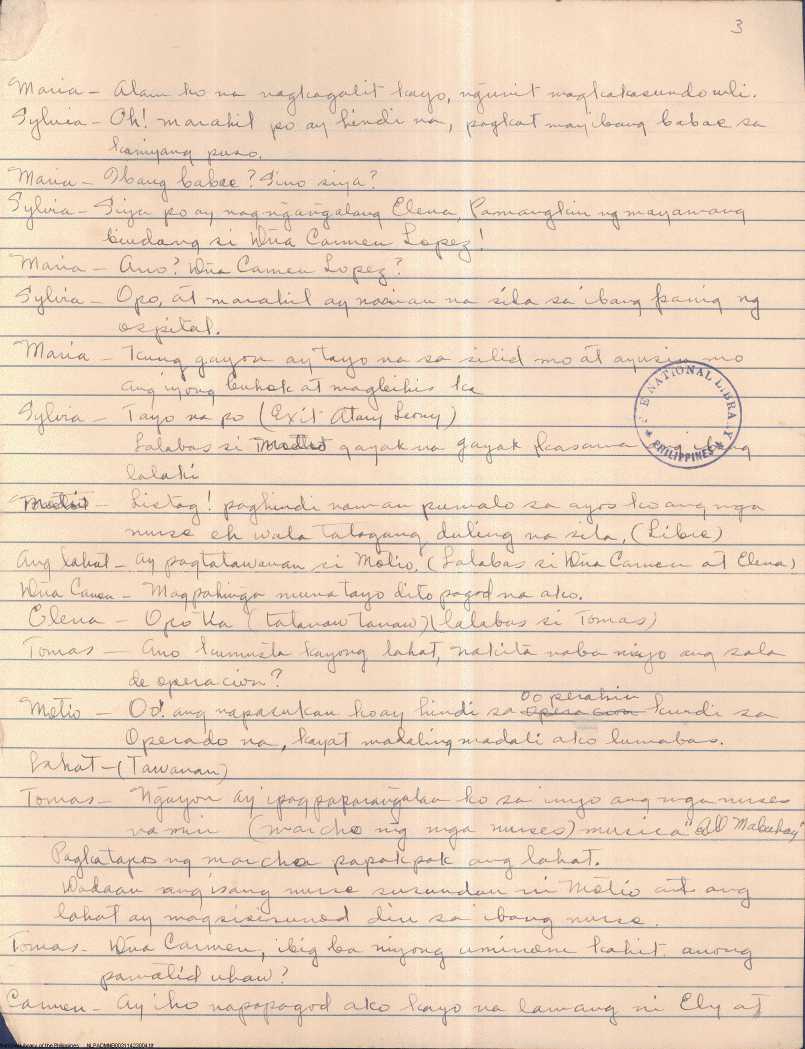 3
Maria - Alam ko na nagkagalit kayo, ngunit magkakasundo uli.
Sylvia - Oh! marahil po ay hindi na, pagkat may ibang babae sa
kaniyang puso.
Maria - Ibang babae? Sino siya?
Sylvia - Siya po ay nagngangalang Elena, Pamangkin ng mayamang
biudang si Dña Carmen Lopez!
Maria - Ano? Dña Carmen Lopez?
Sylvia - Opo, at marahil ay naiinan na sila sa ibang panig ng
ospital.
Maria - Kung gayon ay tayo na sa silid mo at ayusin mo
ang iyong buhok at magbihis ka
Sylvia - Tayo na po (Exit Atary Leony)
Lalabas si gayak na gayak kasama ang ibang
lalaki
- Listog! paghindi naman pumalo sa ayos ko ang mga
nurse eh wala talagang duling na sila, (Libre)
Ang lahat - ay pagtatawanan si Metio, (Lalabas si Dña Carmen at Elena)
Dña Carmen - Magpahinga muna tayo dito pagod na ako.
Elena - Opo Ka (tatanaw tanaw) (lalabas si Tomas)
Tomas - Ano kumusta kayong lahat, nakita naba ninyo ang sala
de operacion?
Metio - Oo! ang napasukan ko ay hindi sa Ooperahin operacion kundi sa
Operado na, kayat madaling madali ako lumabas.
Lahat - (Tawanan)
Tomas - Ngayon ay ipagpaparangalan ko sa inyo ang mga nurses
namin (marcha ng mga nurses) musica "All Mabuhay"
Pagkatapos ng marcha papakpak ang lahat.
Dadaan ang isang nurse susundan ni Metio at ang
lahat ay magsisisunod din sa ibang nurse.
Tomas - Dña Carmen, ibig ba niyong uminom kahit anong
pamatid uhaw?
Carmen - Ay iho napapagod ako kayo na lamang ni Ely at
THE NATIONAL LIBRARY
PHILIPPINES
National Library of the Philippines NLPADMNB00311423004.tif